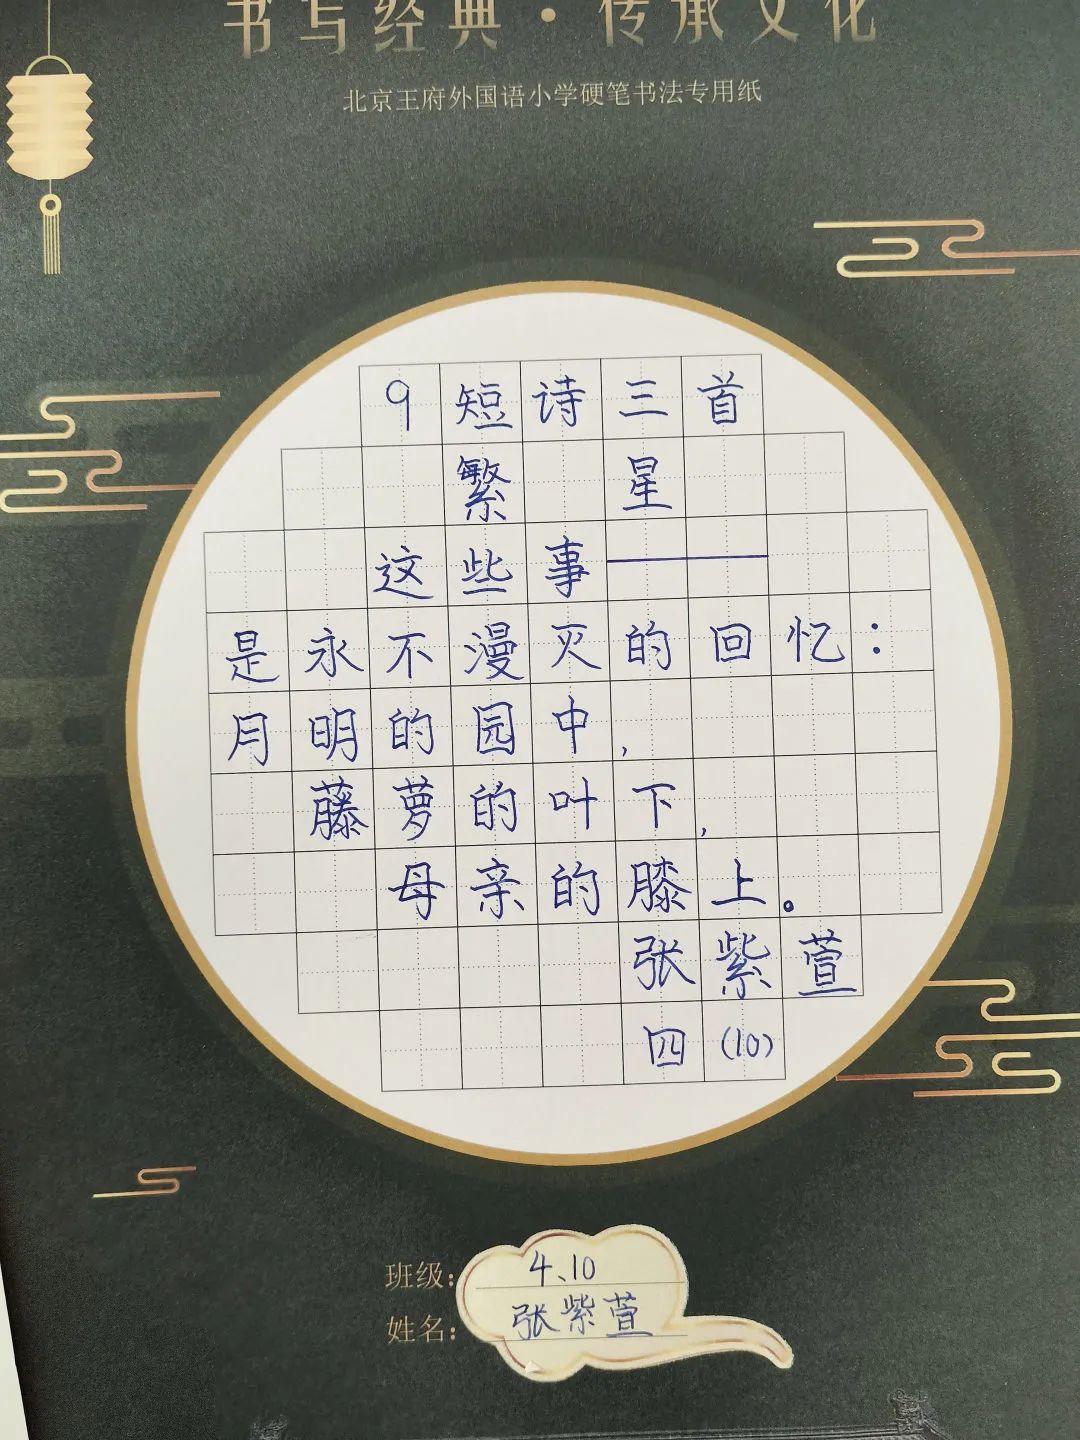 书写经典·传承文化
北京王府外国语小学硬笔书法专用纸
9短诗三首
繁星
这些事——
是永不漫灭的回忆：
月明的园中，
藤萝的叶下，
母亲的膝上。
张紫萱
四(10)
班级：4、10
姓名：张紫萱